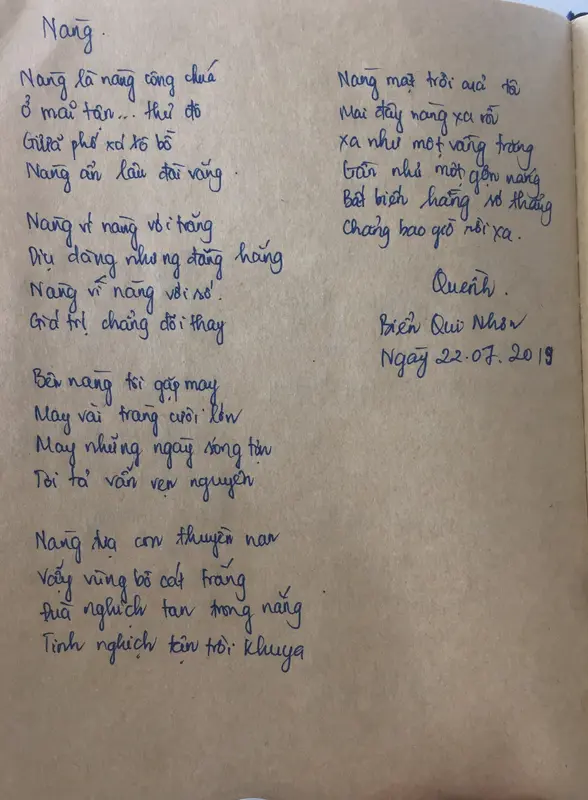 Nàng.
Nàng là nàng công chúa
Ở mãi tận... thủ đô
Giữa phố xá xô bồ
Nàng ẩn lâu đài vắng.
Nàng ví nàng với trăng
Dịu dàng nhưng đằng hắng
Nàng ví nàng với số.
Giá trị chẳng đổi thay
Bên nàng tôi gặp may
May vài tràng cười lớn
May những ngày sóng tợn
Tôi tả vẫn vẹn nguyên
Nàng tựa con thuyền nan
Vẫy vùng bờ cát trắng
Đùa nghịch tan trong nắng
Tinh nghịch tận trời khuya
Nàng mặt trời của tôi
Mai đây nàng xa rồi
Xa như một vầng trăng
Gần như một gợn nắng
Bất biến hằng số thắng
Chẳng bao giờ rời xa.
Quenh.
Biển Qui Nhơn
Ngày 22.07.2019